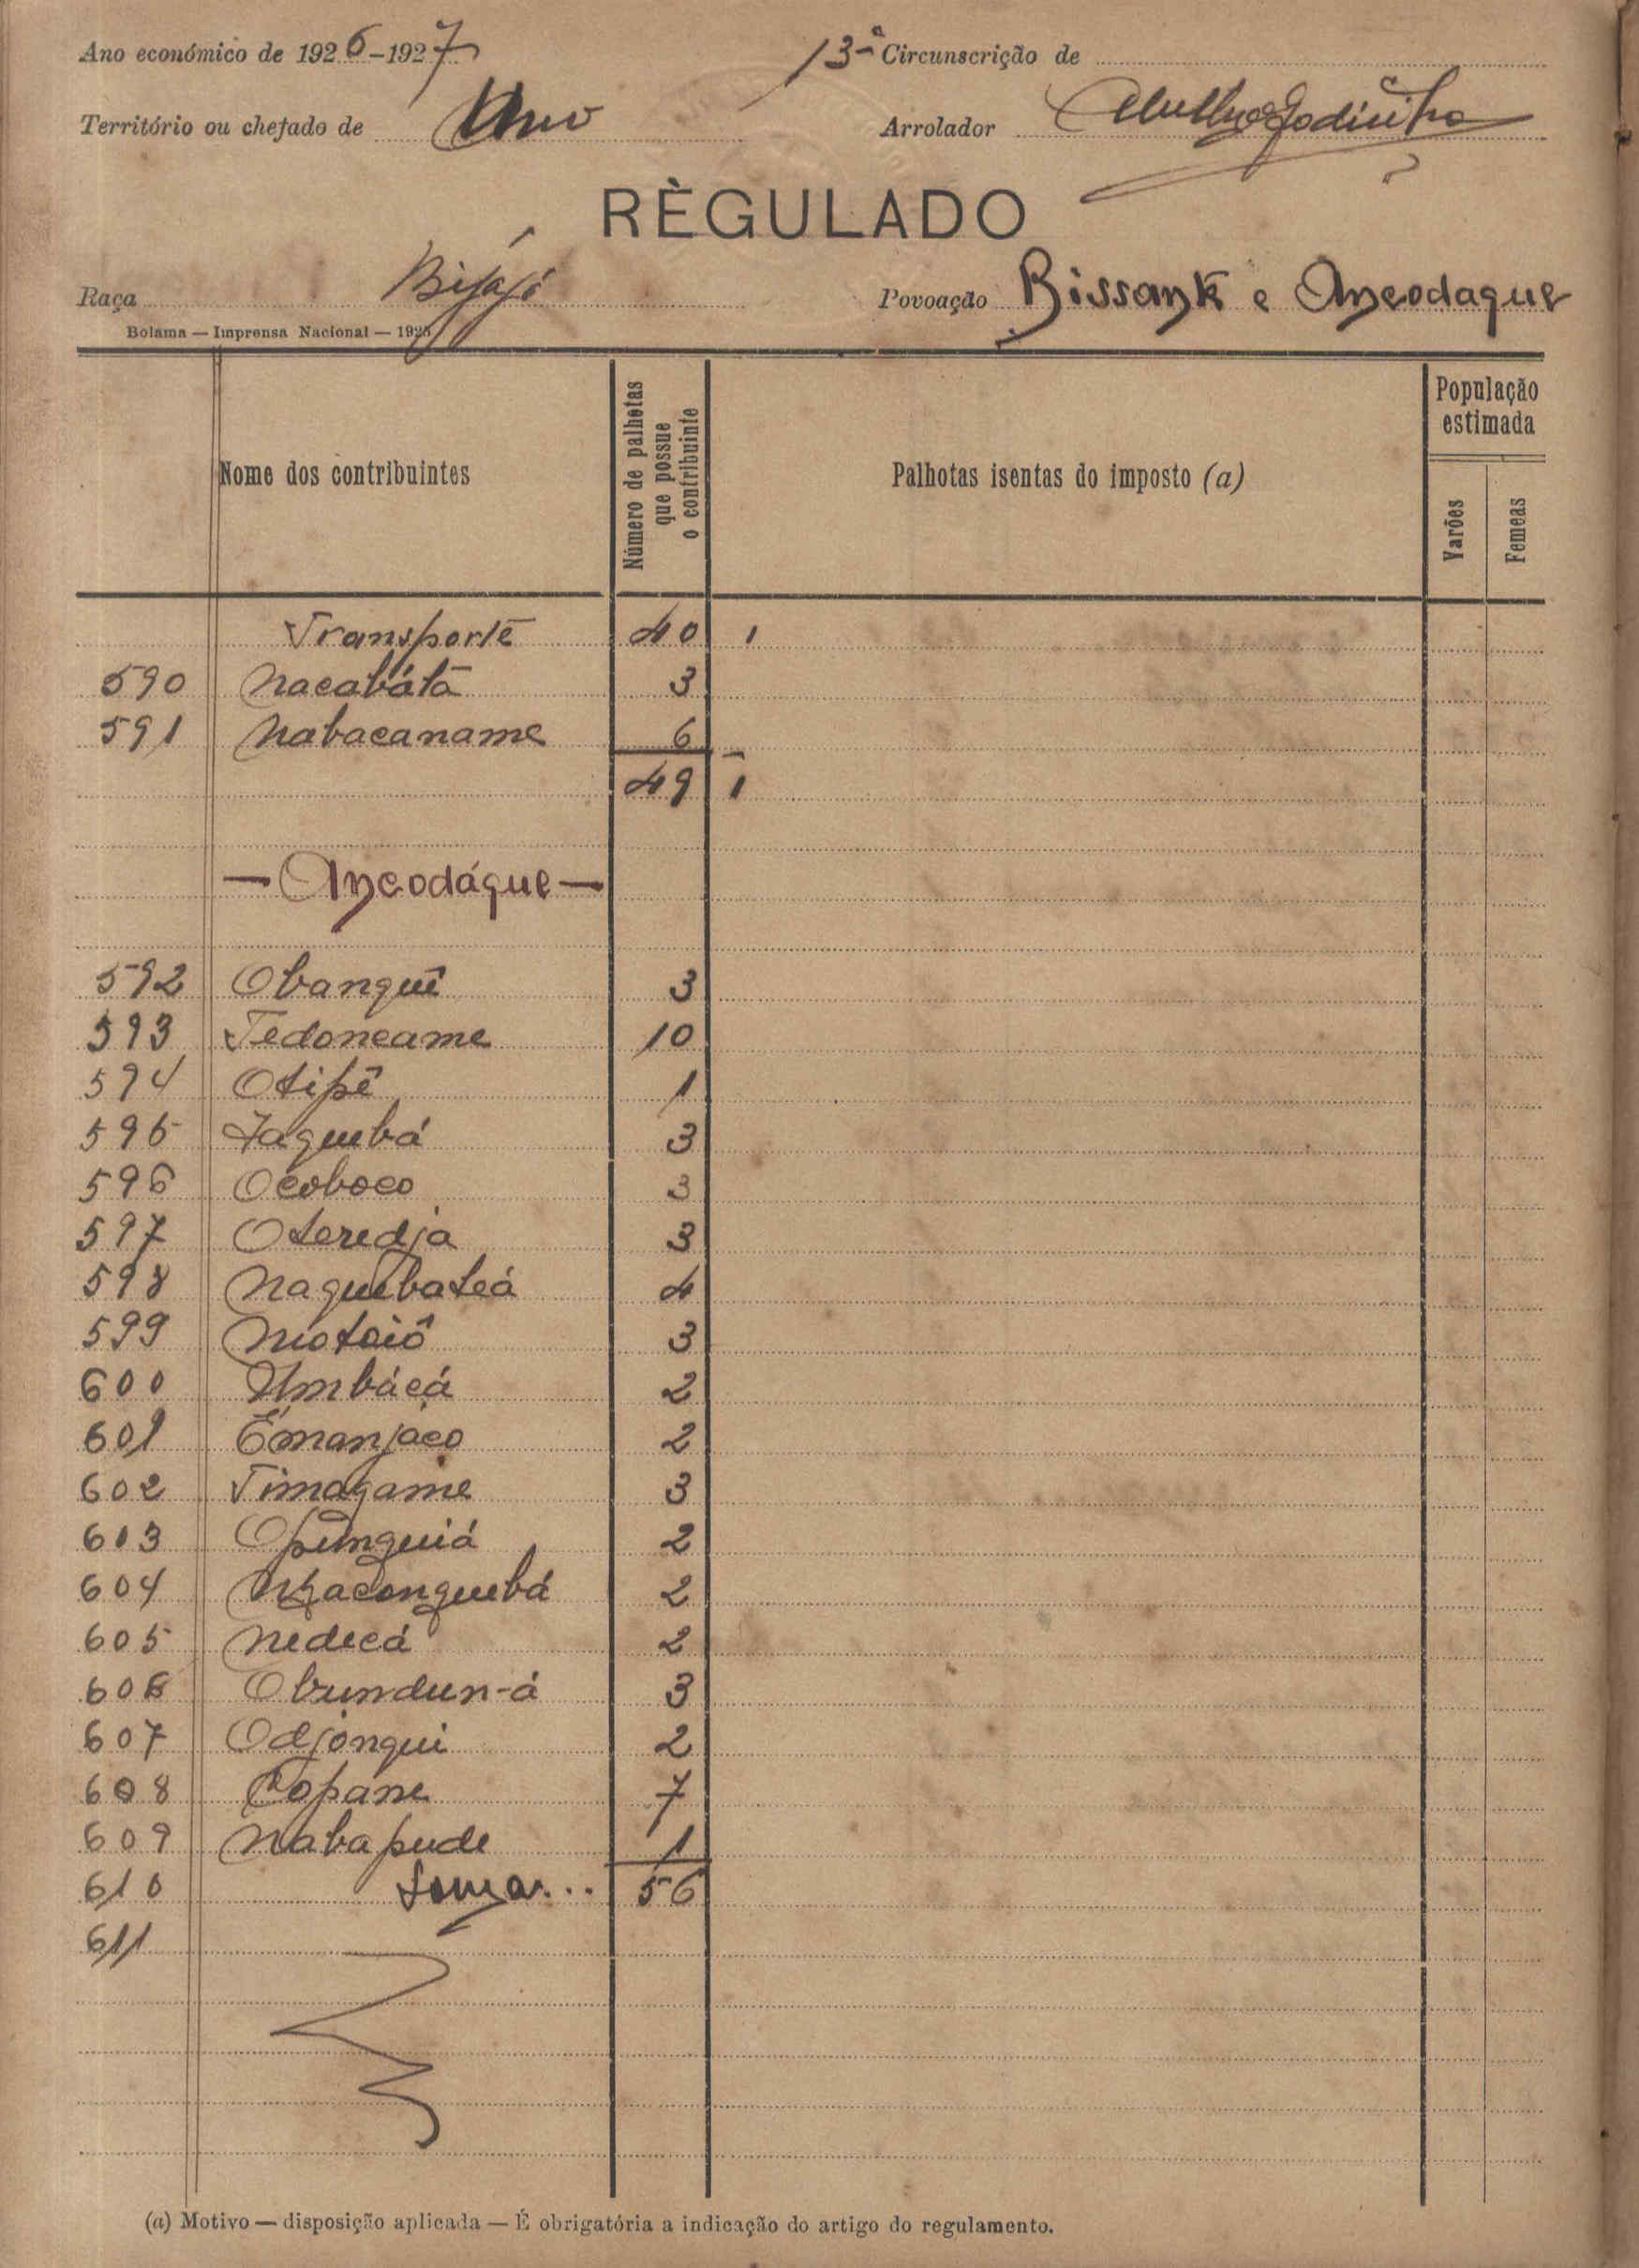 Ano económico de 1926-1927 13ª Circunscrição de
Território ou chefado de Uno Arrolador Godinho
RÈGULADO
Raça Bijagó Povoação Bissank e Ancodaque
Bolama — Imprensa Nacional — 1925
Nome dos contribuintes
Número de palhotas que possue o contribuinte
Palhotas isentas do imposto (a)
População estimada
Varões
Femeas
Transporte 40 1
590 Nacabátã 3
591 Nabacaname 6
49 1
— Ancodáque —
592 Obanquê 3
593 Tedoncame 10
594 Otipê 1
595 Jaguebá 3
596 Ocoboco 3
597 Oteredja 3
598 Naquebateá 4
599 Motoiô 3
600 Umbácá 2
601 Émanjaco 2
602 Timagame 3
603 Opunguiá 2
604 Naconguebá 2
605 Nedecá 2
606 Obundun-á 3
607 Odjonqui 2
608 Copane 7
609 Nabapude 1
610 Soma... 56
611
(a) Motivo — disposição aplicada — É obrigatória a indicação do artigo do regulamento.